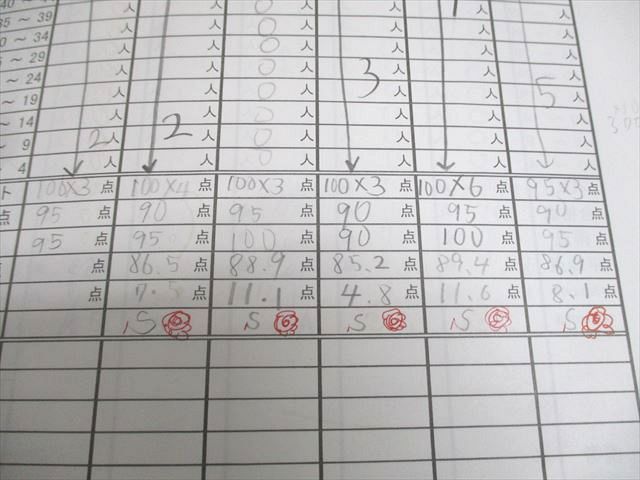 35 ～ 39 人 人 0人 人 人 人
30 ～ 34 人 人 0人 人 人 人
25 ～ 29 人 人 0人 人 人 人
～ 24 人 人 0人 3人 人 人
～ 19 人 人 0人 人 人 5人
～ 14 人 2人 0人 人 人 人
～ 9 2人 人 0人 人 人 人
～ 4 人 人 0人 人 人 人
ト 100×3点 100×4点 100×3点 100×3点 100×6点 95×3点
点 95点 90点 95点 90点 95点 90点
95点 95点 100点 90点 100点 95点
点 86.5点 88.9点 85.2点 89.4点 86.9点
点 7.5点 11.1点 4.8点 11.6点 8.1点
S S S S S